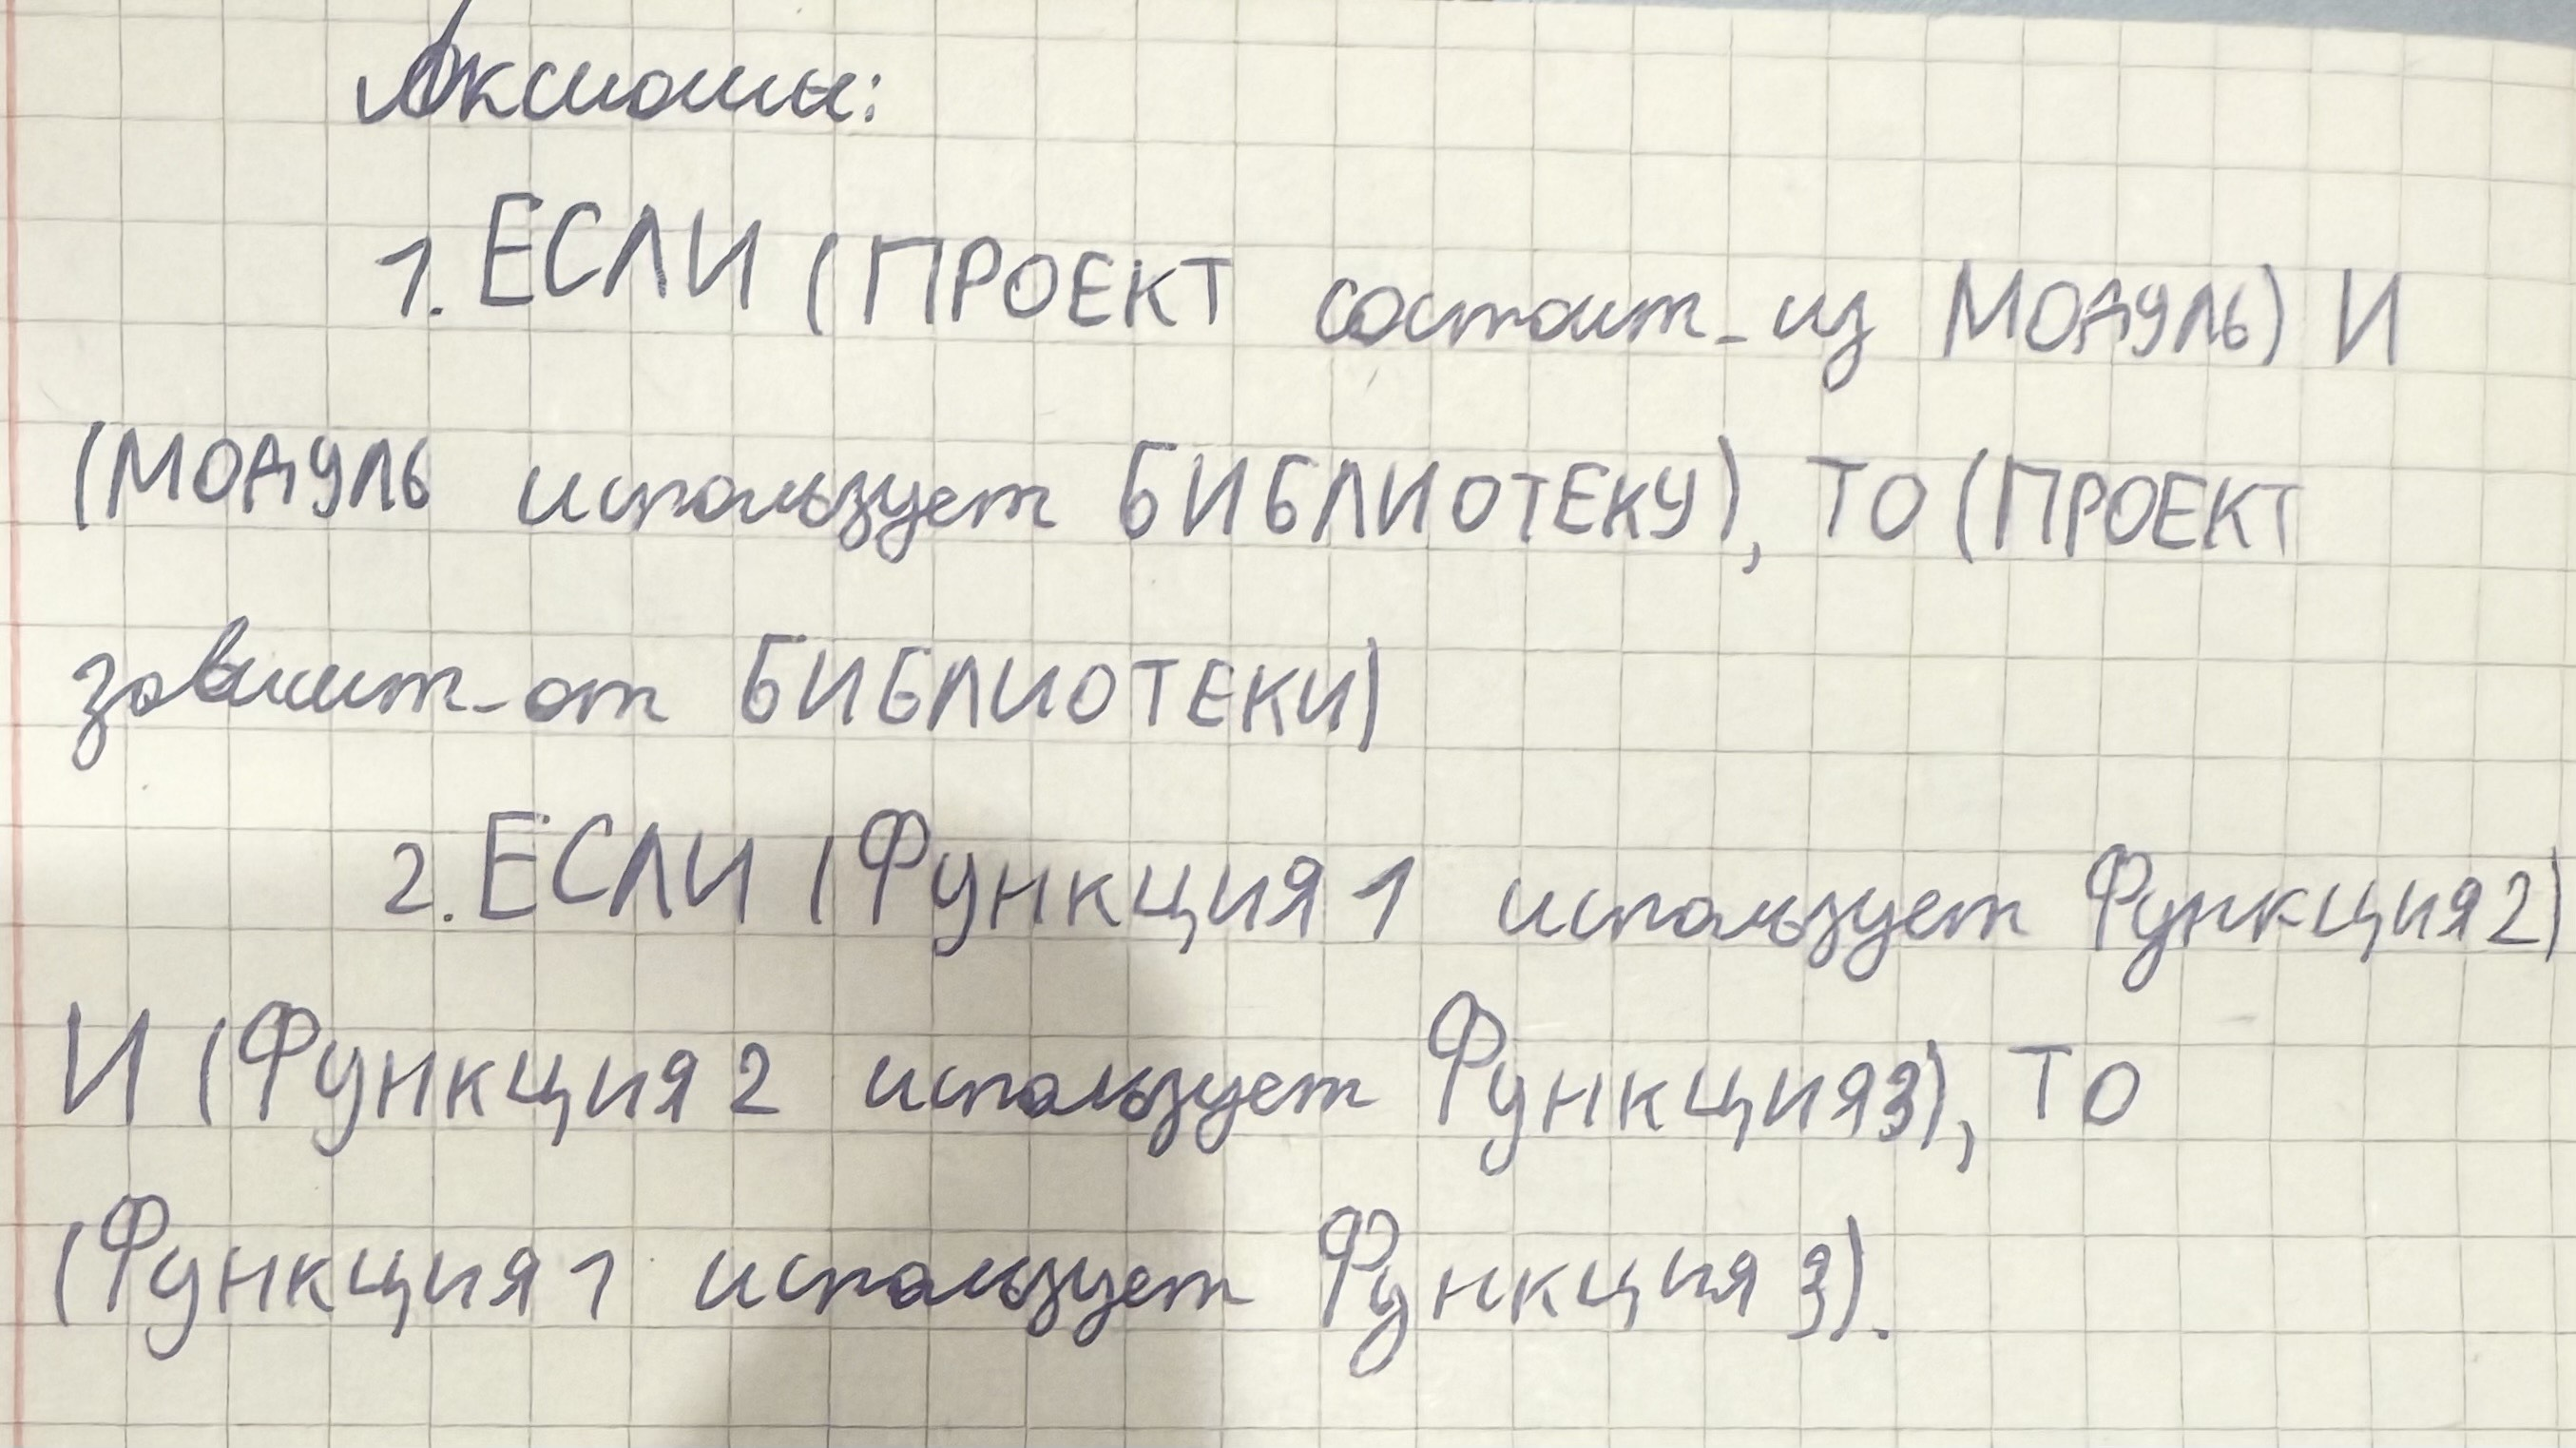 Аксиомы:
1. ЕСЛИ (ПРОЕКТ состоит_из МОДУЛЬ) И
(МОДУЛЬ использует БИБЛИОТЕКУ), ТО (ПРОЕКТ
зависит_от БИБЛИОТЕКИ)
2. ЕСЛИ (Функция 1 использует Функция 2)
И (Функция 2 использует Функция 3), ТО
(Функция 1 использует Функция 3).